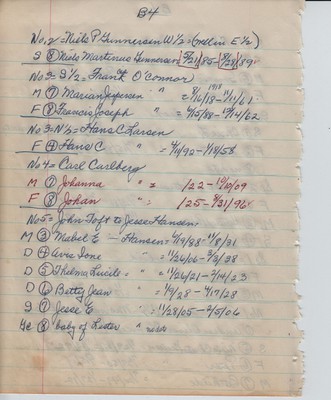 B4
No, 2 = Niels P Gunnersen W 1/2 = (well in E 1/2)
S (8) Niels Martinus Gunnersen 5/21/85 - 8/28/89
No 3 = S 1/2 = Frank O'Connor
M (7) Marian Jepersen " = 8/16/18 - 11/11/61
1918
F (8) Francis Joseph " = 6/15/88 - 10/14/62
No 3 = N 1/2 = Hans C Larsen
F (4) Hans C " = 7/4/92 - 1/18/58
No 4 = Carl Carlberg
M (7) Johanna " = 1/22 - 10/10/09
F (8) Johan " = 1/25 - 3/31/96
No 5 = John Toft to Jesse Hansen
M (3) Mabel E - Hansen = 7/19/88 - 11/8/31
D (4) Avis Ione " = 11/26/06 - 3/3/38
D (5) Thelma Lucile = " = 11/26/21 - 2/14/23
D (6) Betty Jean " = 1/9/28 - 4/17/28
S (7) Jesse E = 11/28/05 - 2/5/06
Gc (8) baby of Lester "